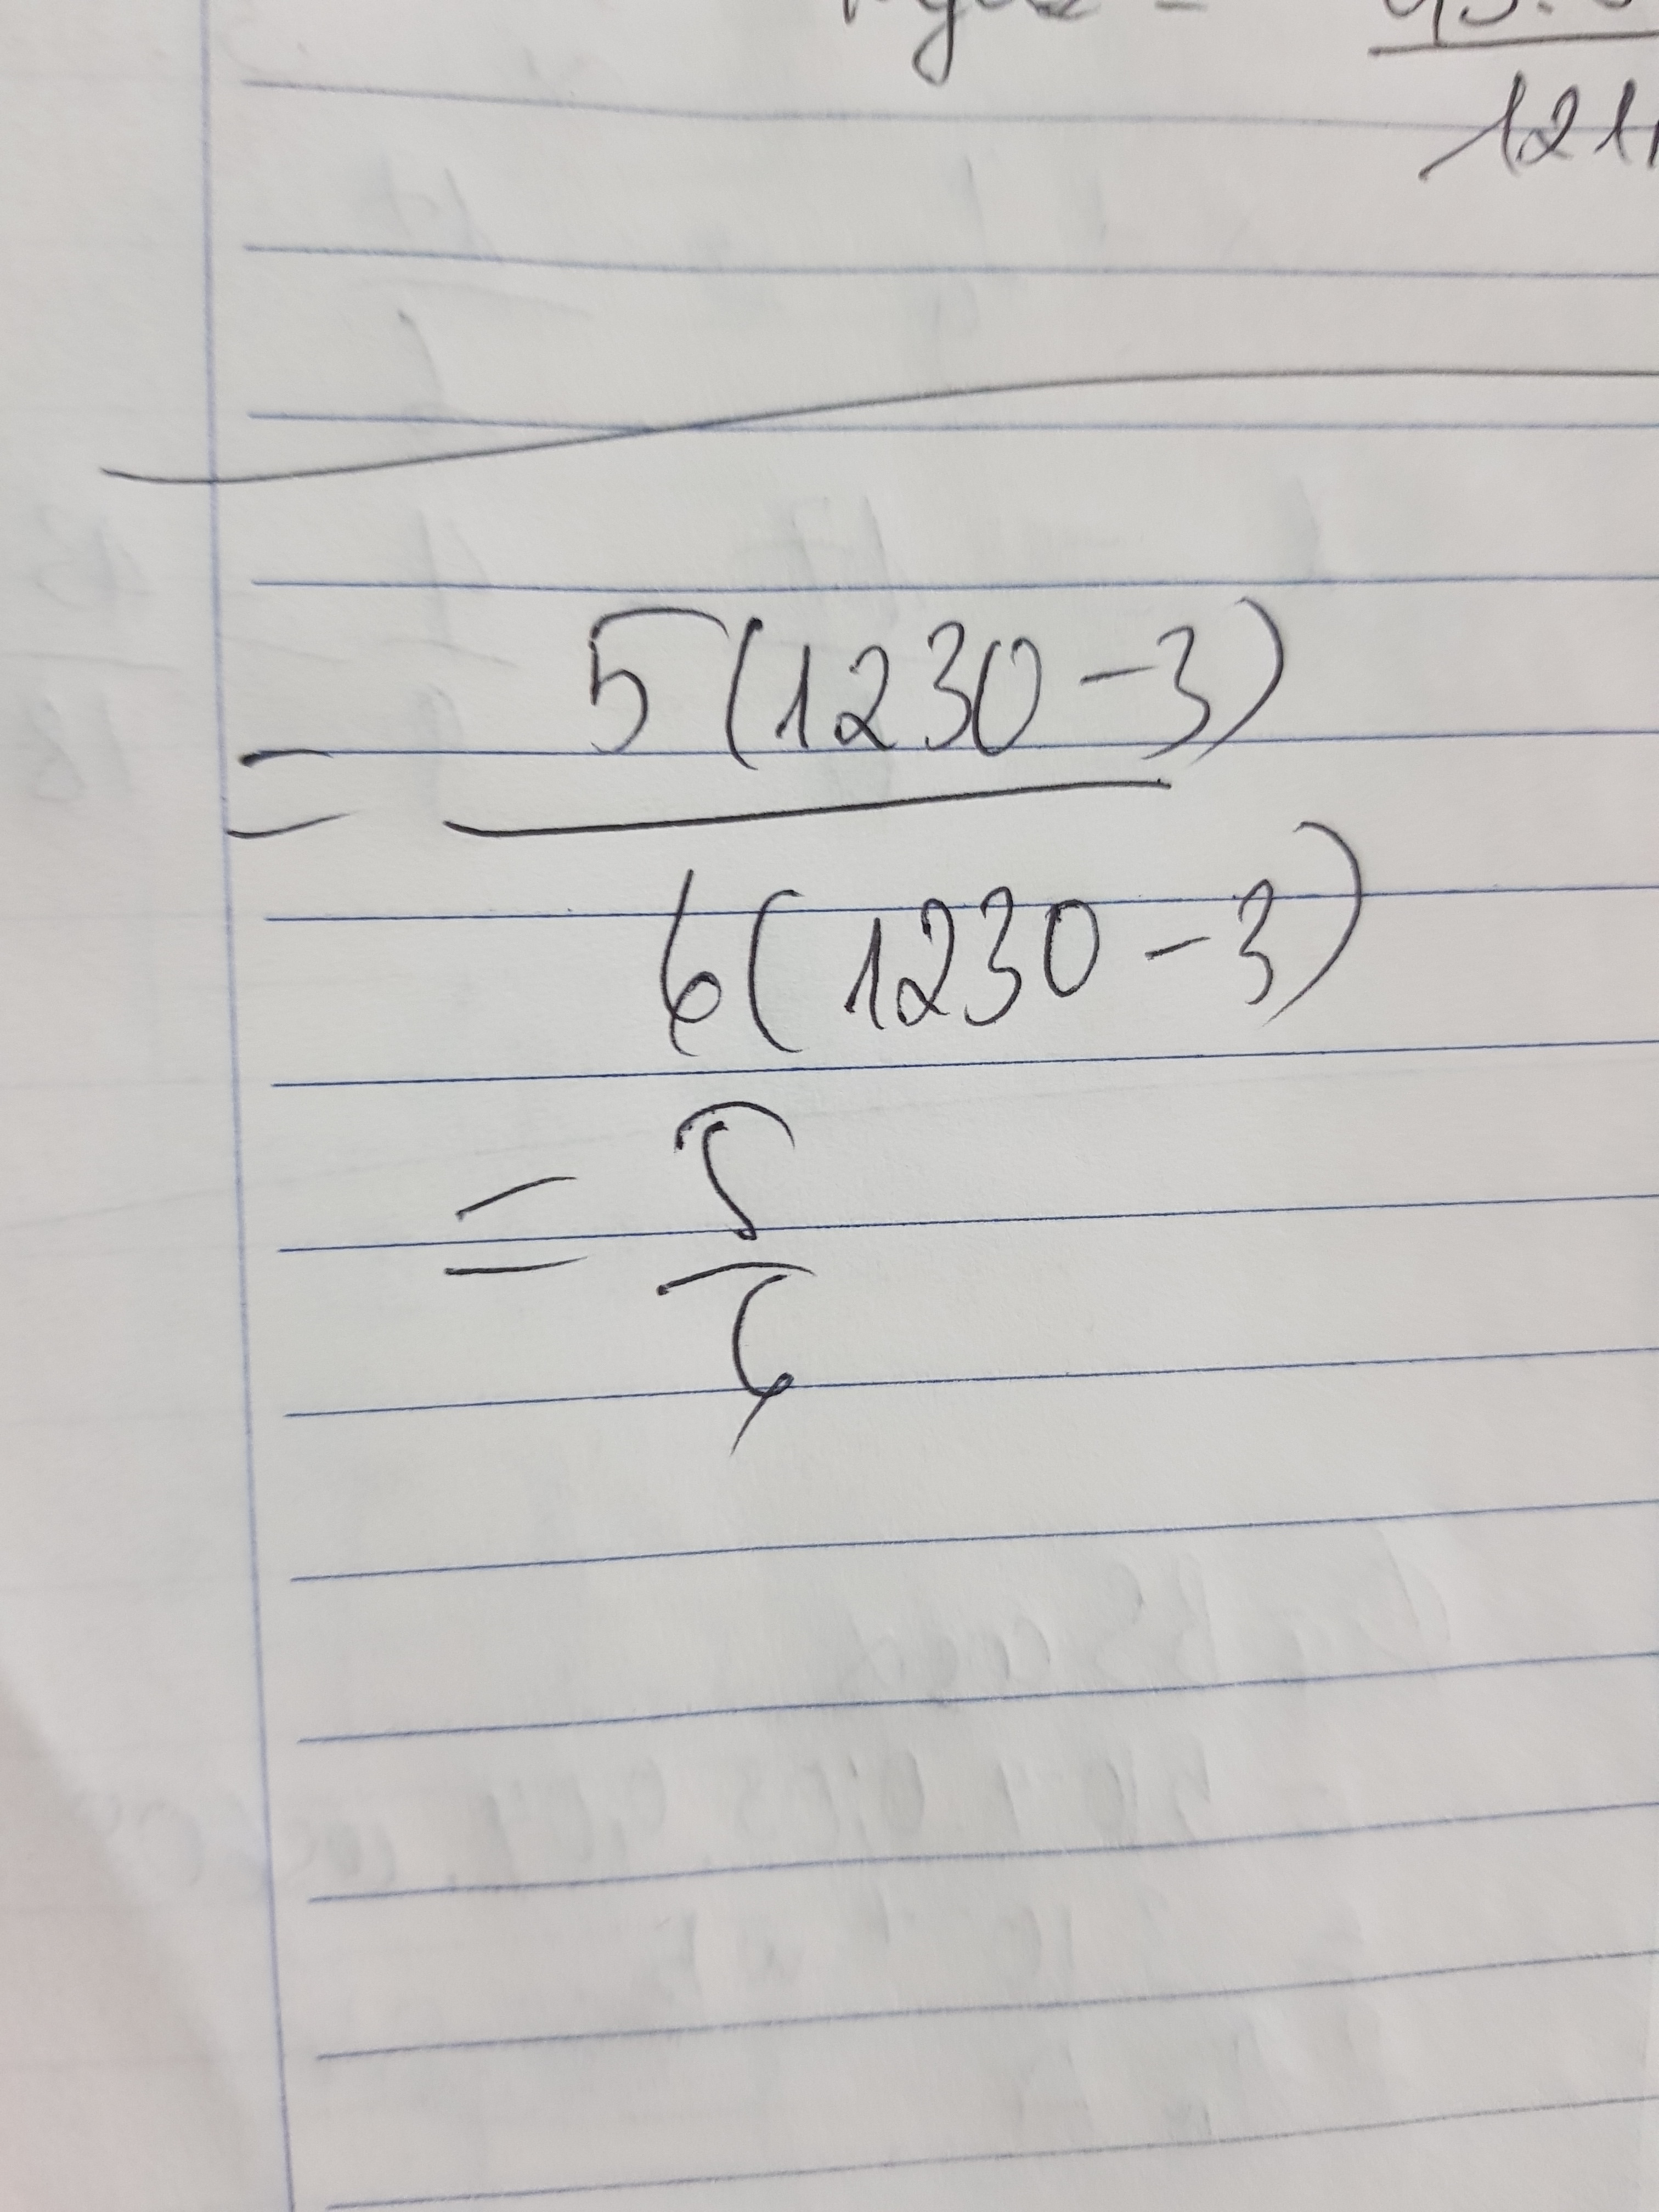 121
= 5(1230-3)
6(1230-3)
= 5
6